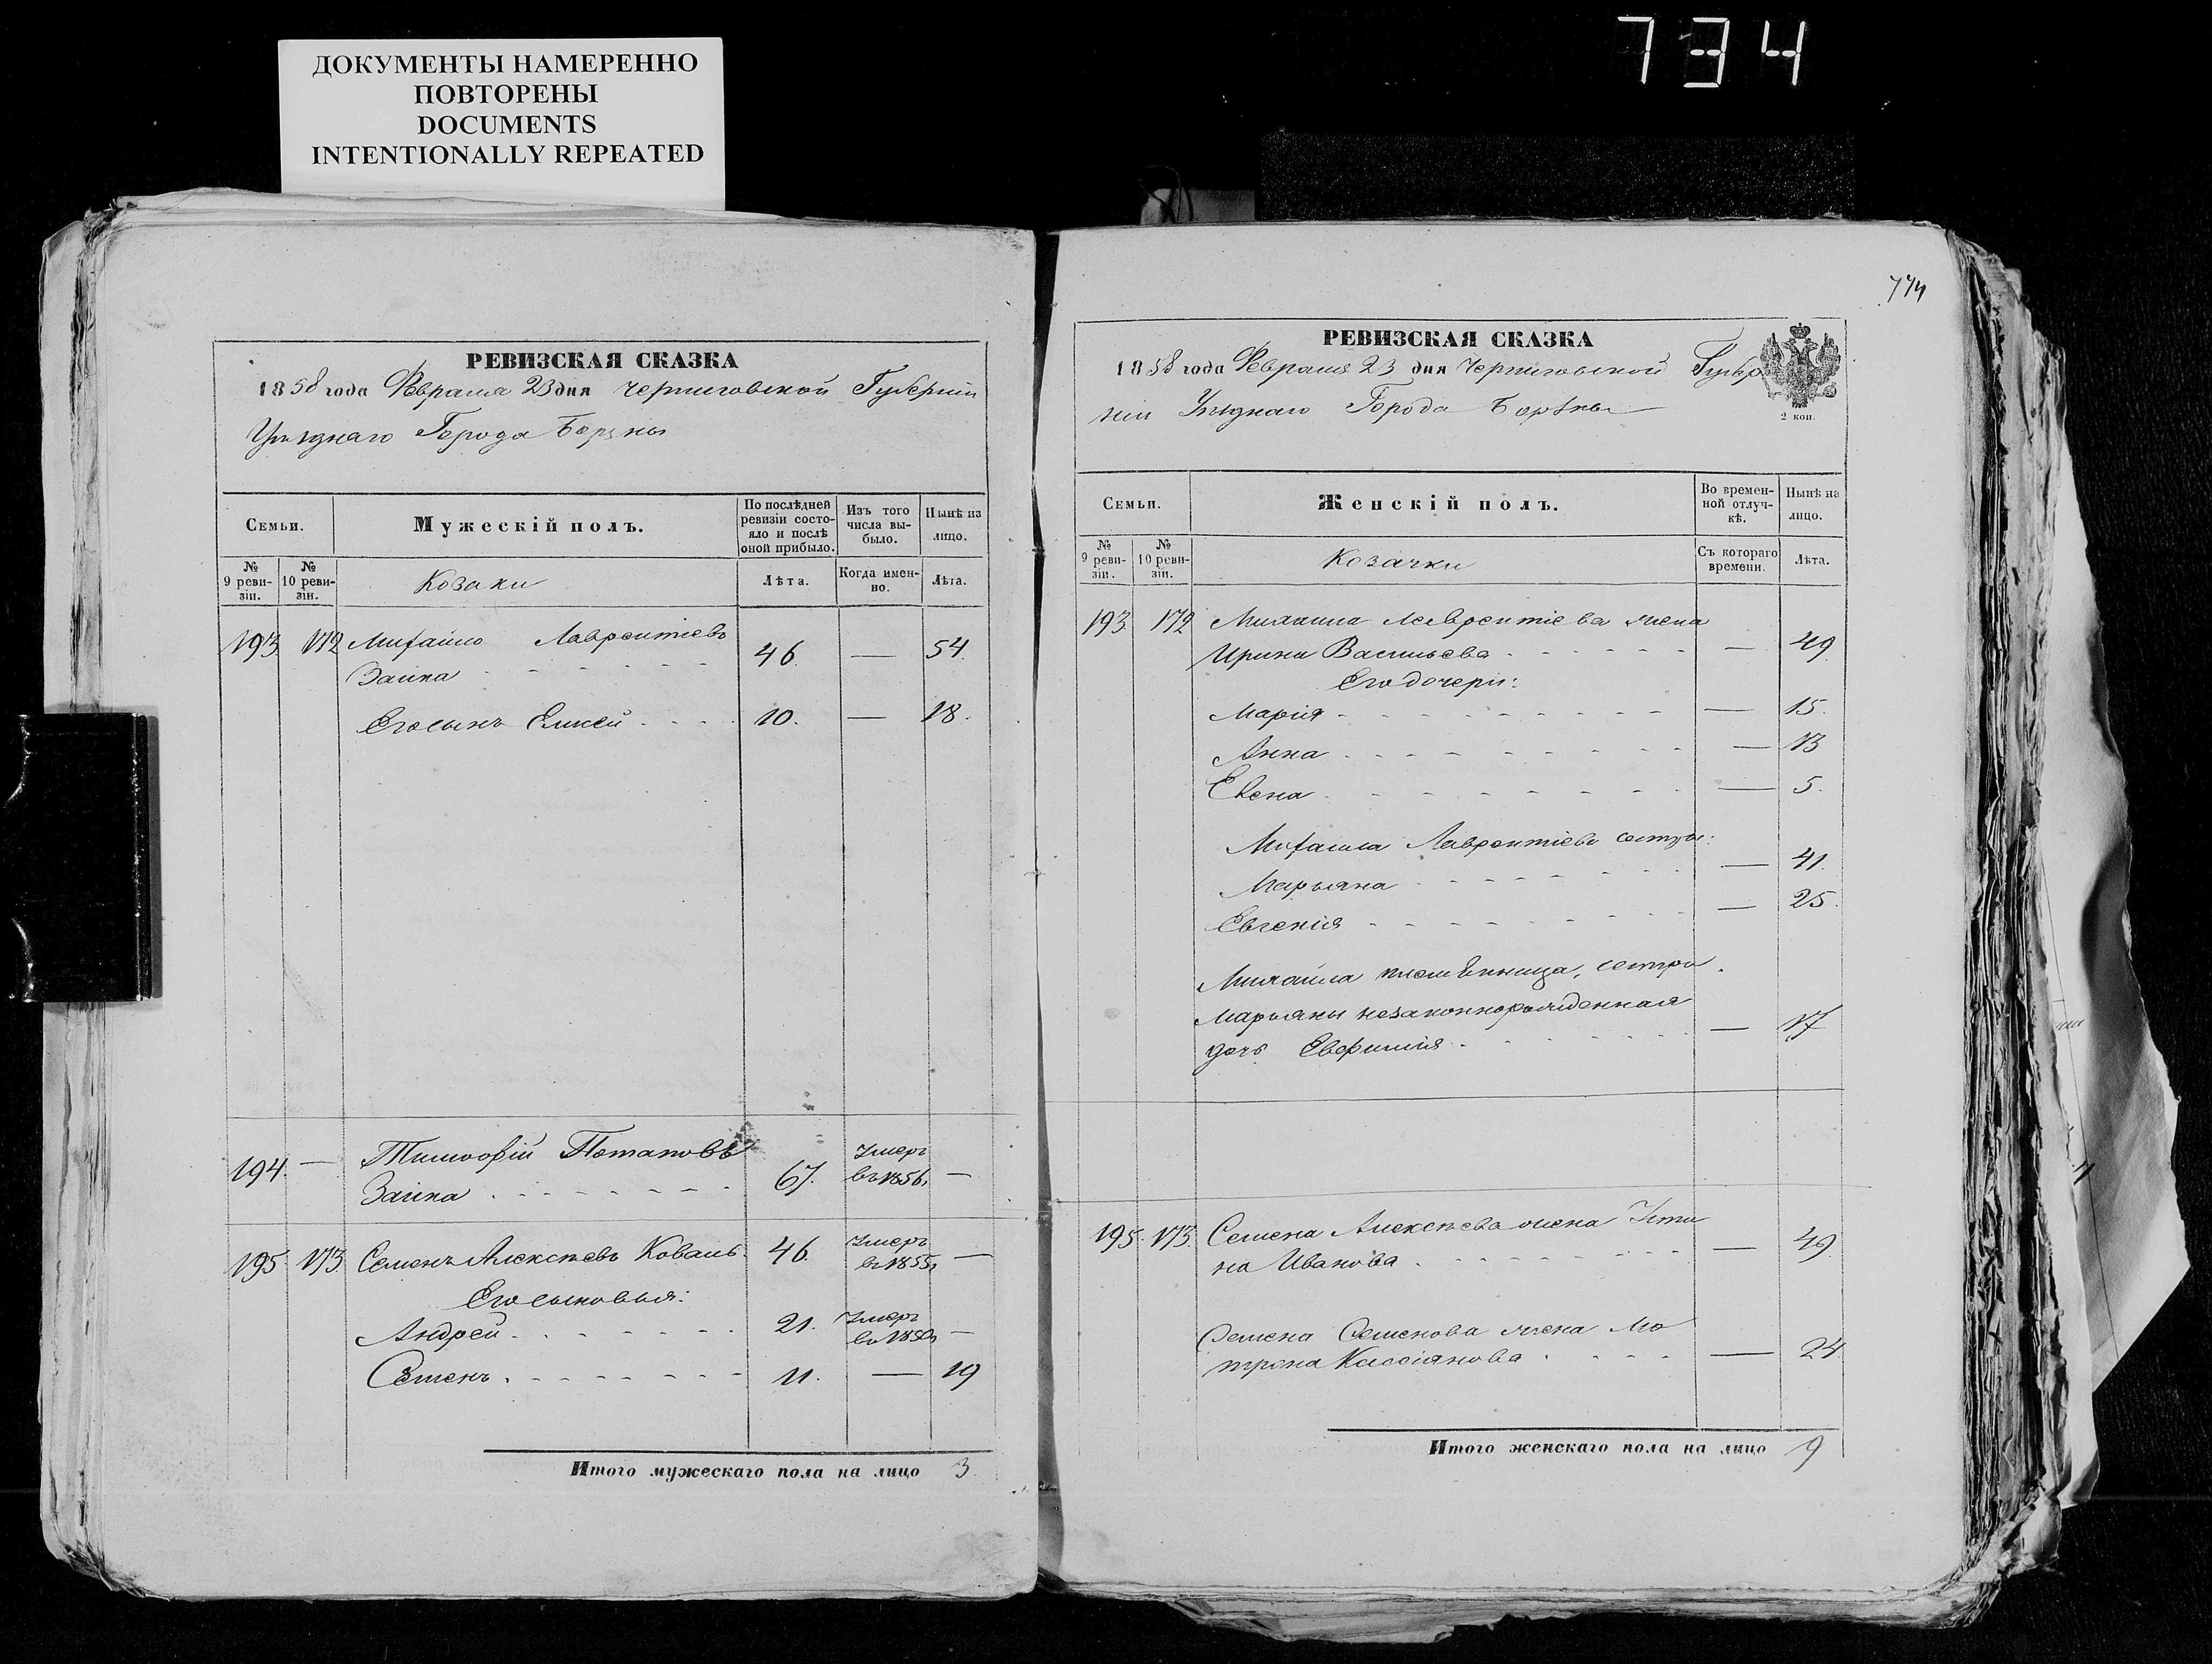 734
ДОКУМЕНТЫ НАМЕРЕННО
ПОВТОРЕНЫ
DOCUMENTS
INTENTIONALLY REPEATED
РЕВИЗСКАЯ СКАЗКА
1858 года Февраля 23 дня Черниговской Губернии
Уѣзднаго Города Борзны
Семьи.
Мужескій полъ.
По послѣдней ревизіи состояло и послѣ оной прибыло.
Изъ того числа выбыло.
Нынѣ на лицо.
№ 9 ревизіи.
№ 10 ревизіи.
Козаки
Лѣта.
Когда именно.
Лѣта.
193 172 Михайло Лаврентіевъ
Заика 46. — 54.
Его сынъ Елисей 10. — 18.
194. — Тимофій Потаповъ
Заика 67. Умеръ въ 1856. —
195. 173. Семенъ Алексѣевъ Коваль 46. Умеръ въ 1855. —
Его сыновья:
Андрей 21. Умеръ въ 1850. —
Семенъ 11. — 19
Итого мужескаго пола на лицо 3.
774
РЕВИЗСКАЯ СКАЗКА
1858 года Февраля 23 дня Черниговской Губер
ніи Уѣзднаго Города Борзны
2 коп.
Семьи.
Женскій полъ.
Во временной отлучкѣ.
Нынѣ на лицо.
№ 9 ревизіи.
№ 10 ревизіи.
Козачки
Съ котораго времени.
Лѣта.
193 172 Михаила Лаврентіева жена
Ирина Васильева — 49
Его дочери:
Марія — 15.
Анна — 13
Елена — 5.
Михаила Лаврентіева сестры:
Марьяна — 41.
Евгенія — 25.
Михаила племѣнница, сестры
Марьяны незаконнорожденная
дочь Евфимія — 17
195. 173. Семена Алексѣева жена Усти
на Иванова — 49
Семена Семенова жена Мо
трона Кассіянова — 24.
Итого женскаго пола на лицо 9